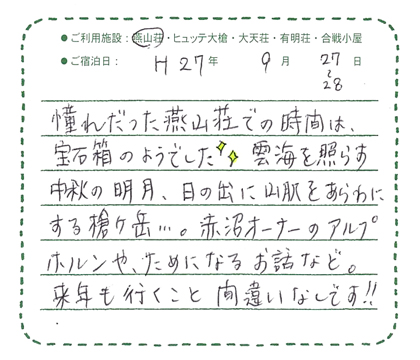 ●ご利用施設：燕山荘・ヒュッテ大槍・大天荘・有明荘・合戦小屋
●ご宿泊日： H 27年 9月 27日
〜
28
憧れだった燕山荘での時間は、
宝石箱のようでした 雲海を照らす
中秋の明月、日の出に山肌をあらわに
する槍ヶ岳…。赤沼オーナーのアルプ
ホルンや、ためになるお話など。
来年も行くこと間違いなしです!!